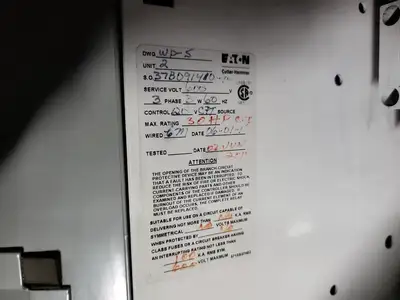 DWG. WD-5
EATON
UNIT 2
Cutler-Hammer
S.O. 378091410
SERVICE VOLT 600
3 PHASE 3 W 60 HZ
CONTROL 120 V CPT SOURCE
MAX. RATING 30 HP
WIRED DATE 06-01-1
TESTED DATE
ATTENTION
THE OPENING OF THE BRANCH CIRCUIT
PROTECTIVE DEVICE MAY BE AN INDICATION
THAT A FAULT HAS BEEN INTERRUPTED. TO
REDUCE THE RISK OF FIRE OR ELECTRIC SHOCK,
CURRENT CARRYING PARTS AND OTHER
COMPONENTS OF THE CONTROLLER SHOULD BE
EXAMINED AND REPLACED IF DAMAGED. IF
BURNOUT OF THE CURRENT ELEMENT OF AN
OVERLOAD OCCURS, THE COMPLETE RELAY
MUST BE REPLACED.
SUITABLE FOR USE ON A CIRCUIT CAPABLE OF
DELIVERING NOT MORE THAN K.A. RMS
SYMMETRICAL VOLTS MAXIMUM
WHEN PROTECTED BY
CLASS FUSES OR A CIRCUIT BREAKER HAVING
AN INTERRUPTING RATING NOT LESS THAN
100 K.A. RMS SYM.
600 VOLT MAXIMUM